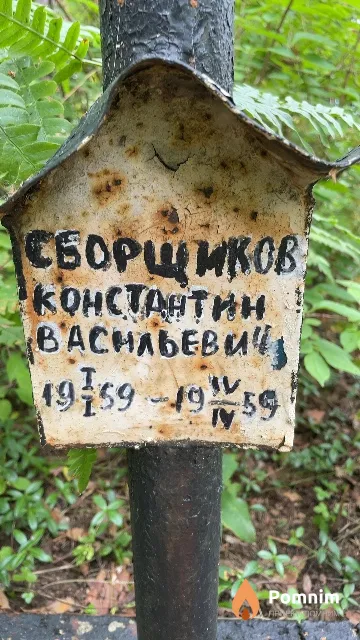 СБОРЩИКОВ
КОНСТАНТИН
ВАСИЛЬЕВИЧ
19 I/I 59 - 19 IV/IV 59
Pomnim